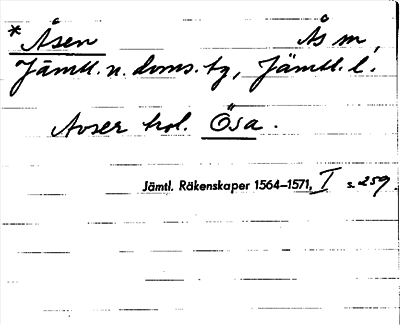 * Åsen Ås m,
Jämtl. n. doms. tg, Jämtl. l.
Avser trol. Ösa.
Jämtl. Räkenskaper 1564–1571, I s. 259.